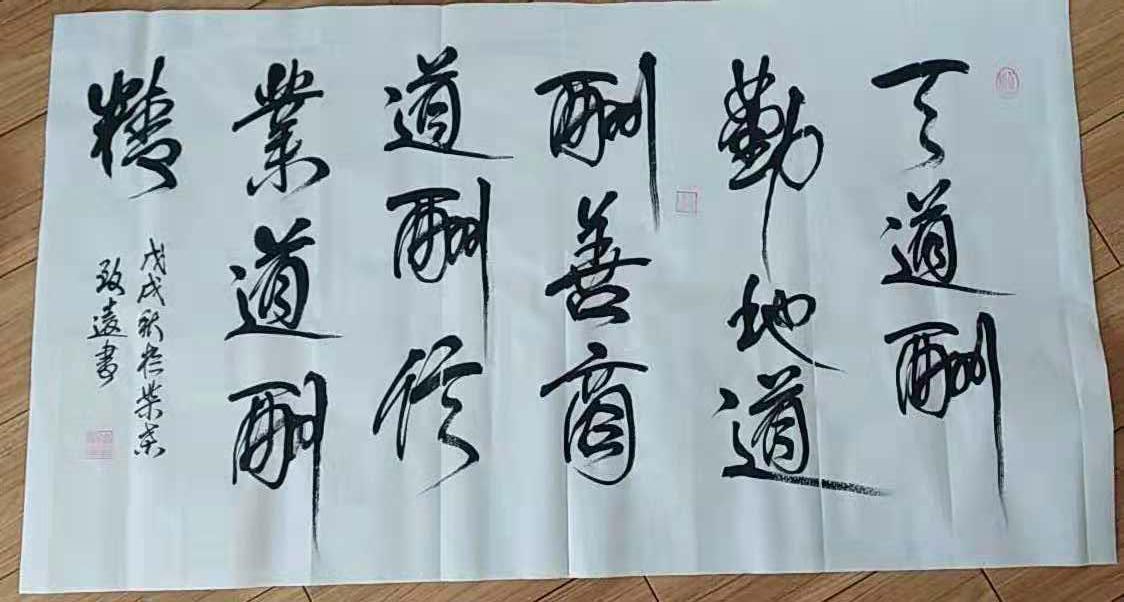 天道酬
勤地道
酬善商
道酬信
業道酬
精
戊戌秋於柴桑
致遠書